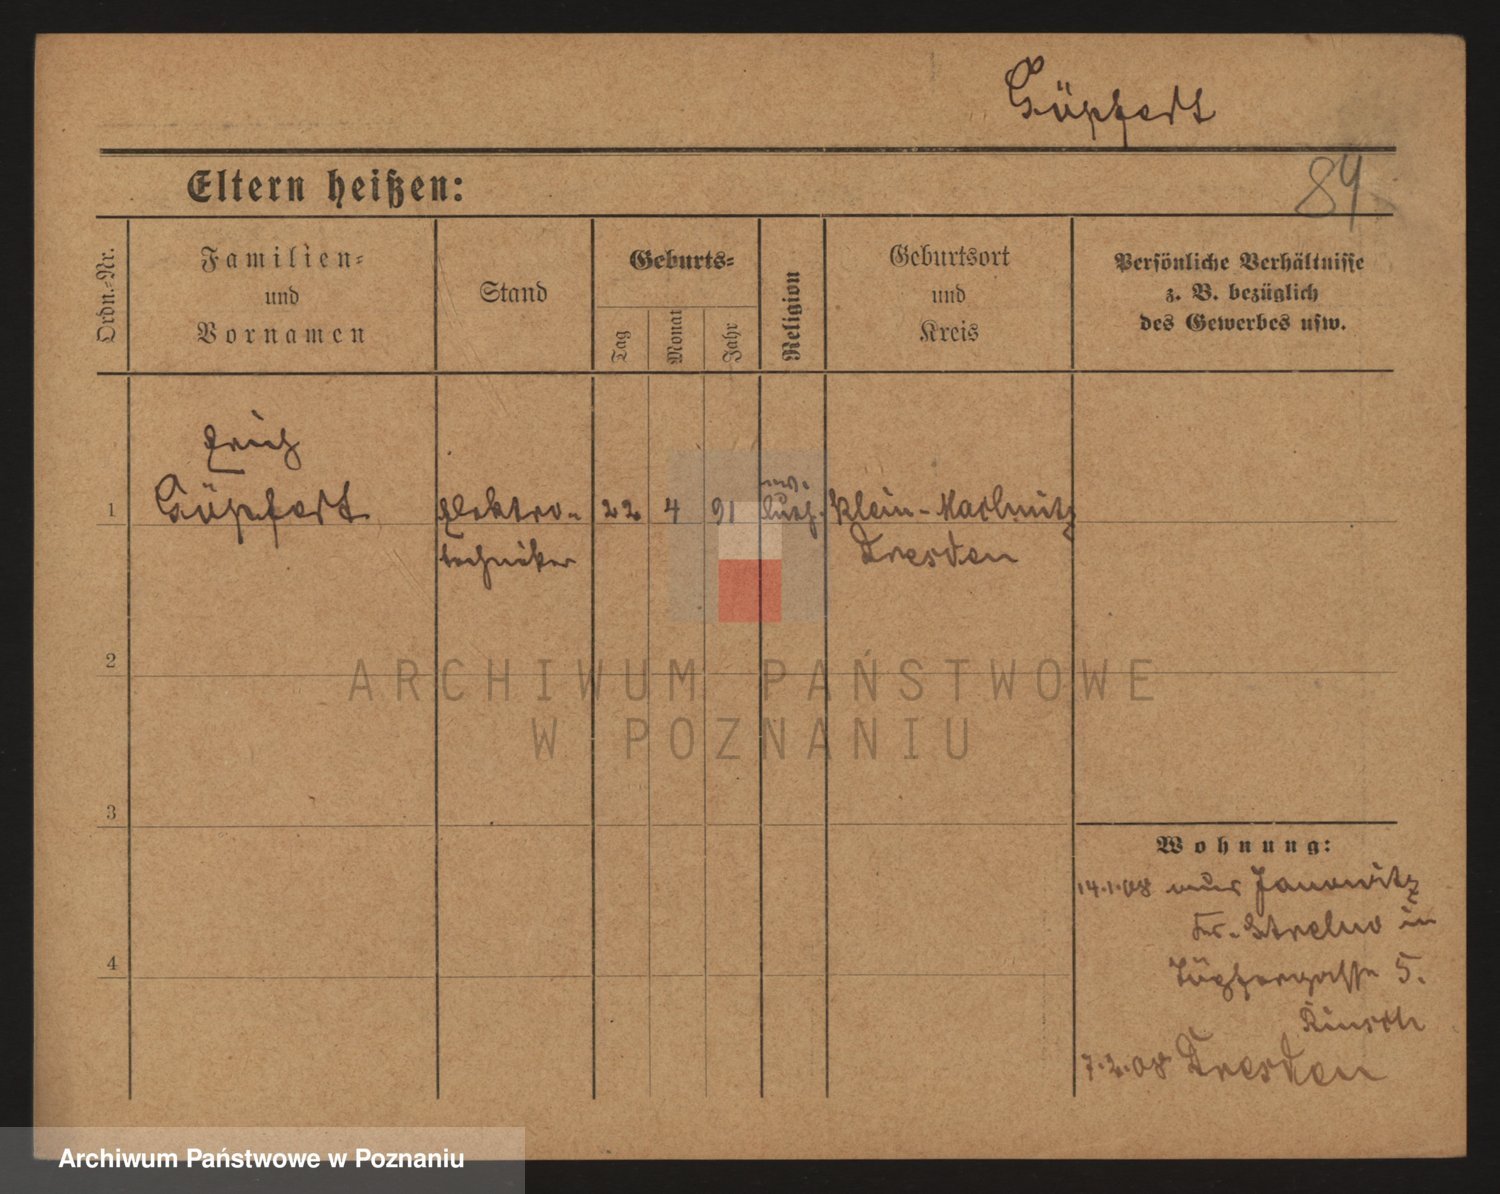 Göpfert
84
Eltern heißen:
Ordn.-Nr.
Familien-
und
Vornamen
Stand
Geburts-
Tag
Monat
Jahr
Religion
Geburtsort
und
Kreis
Persönliche Verhältnisse
z. B. bezüglich
des Gewerbes usw.
Erich
1 Göpfert Elektro- 22 4 91 ev. luth. Klein-
techniker Dresden
2
ARCHIWUM PAŃSTWOWE
W POZNANIU
3
Wohnung:
14.1.08 Janowitz
Kr. Strelno in
5.
4
7.2.08 Dresden
Archiwum Państwowe w Poznaniu